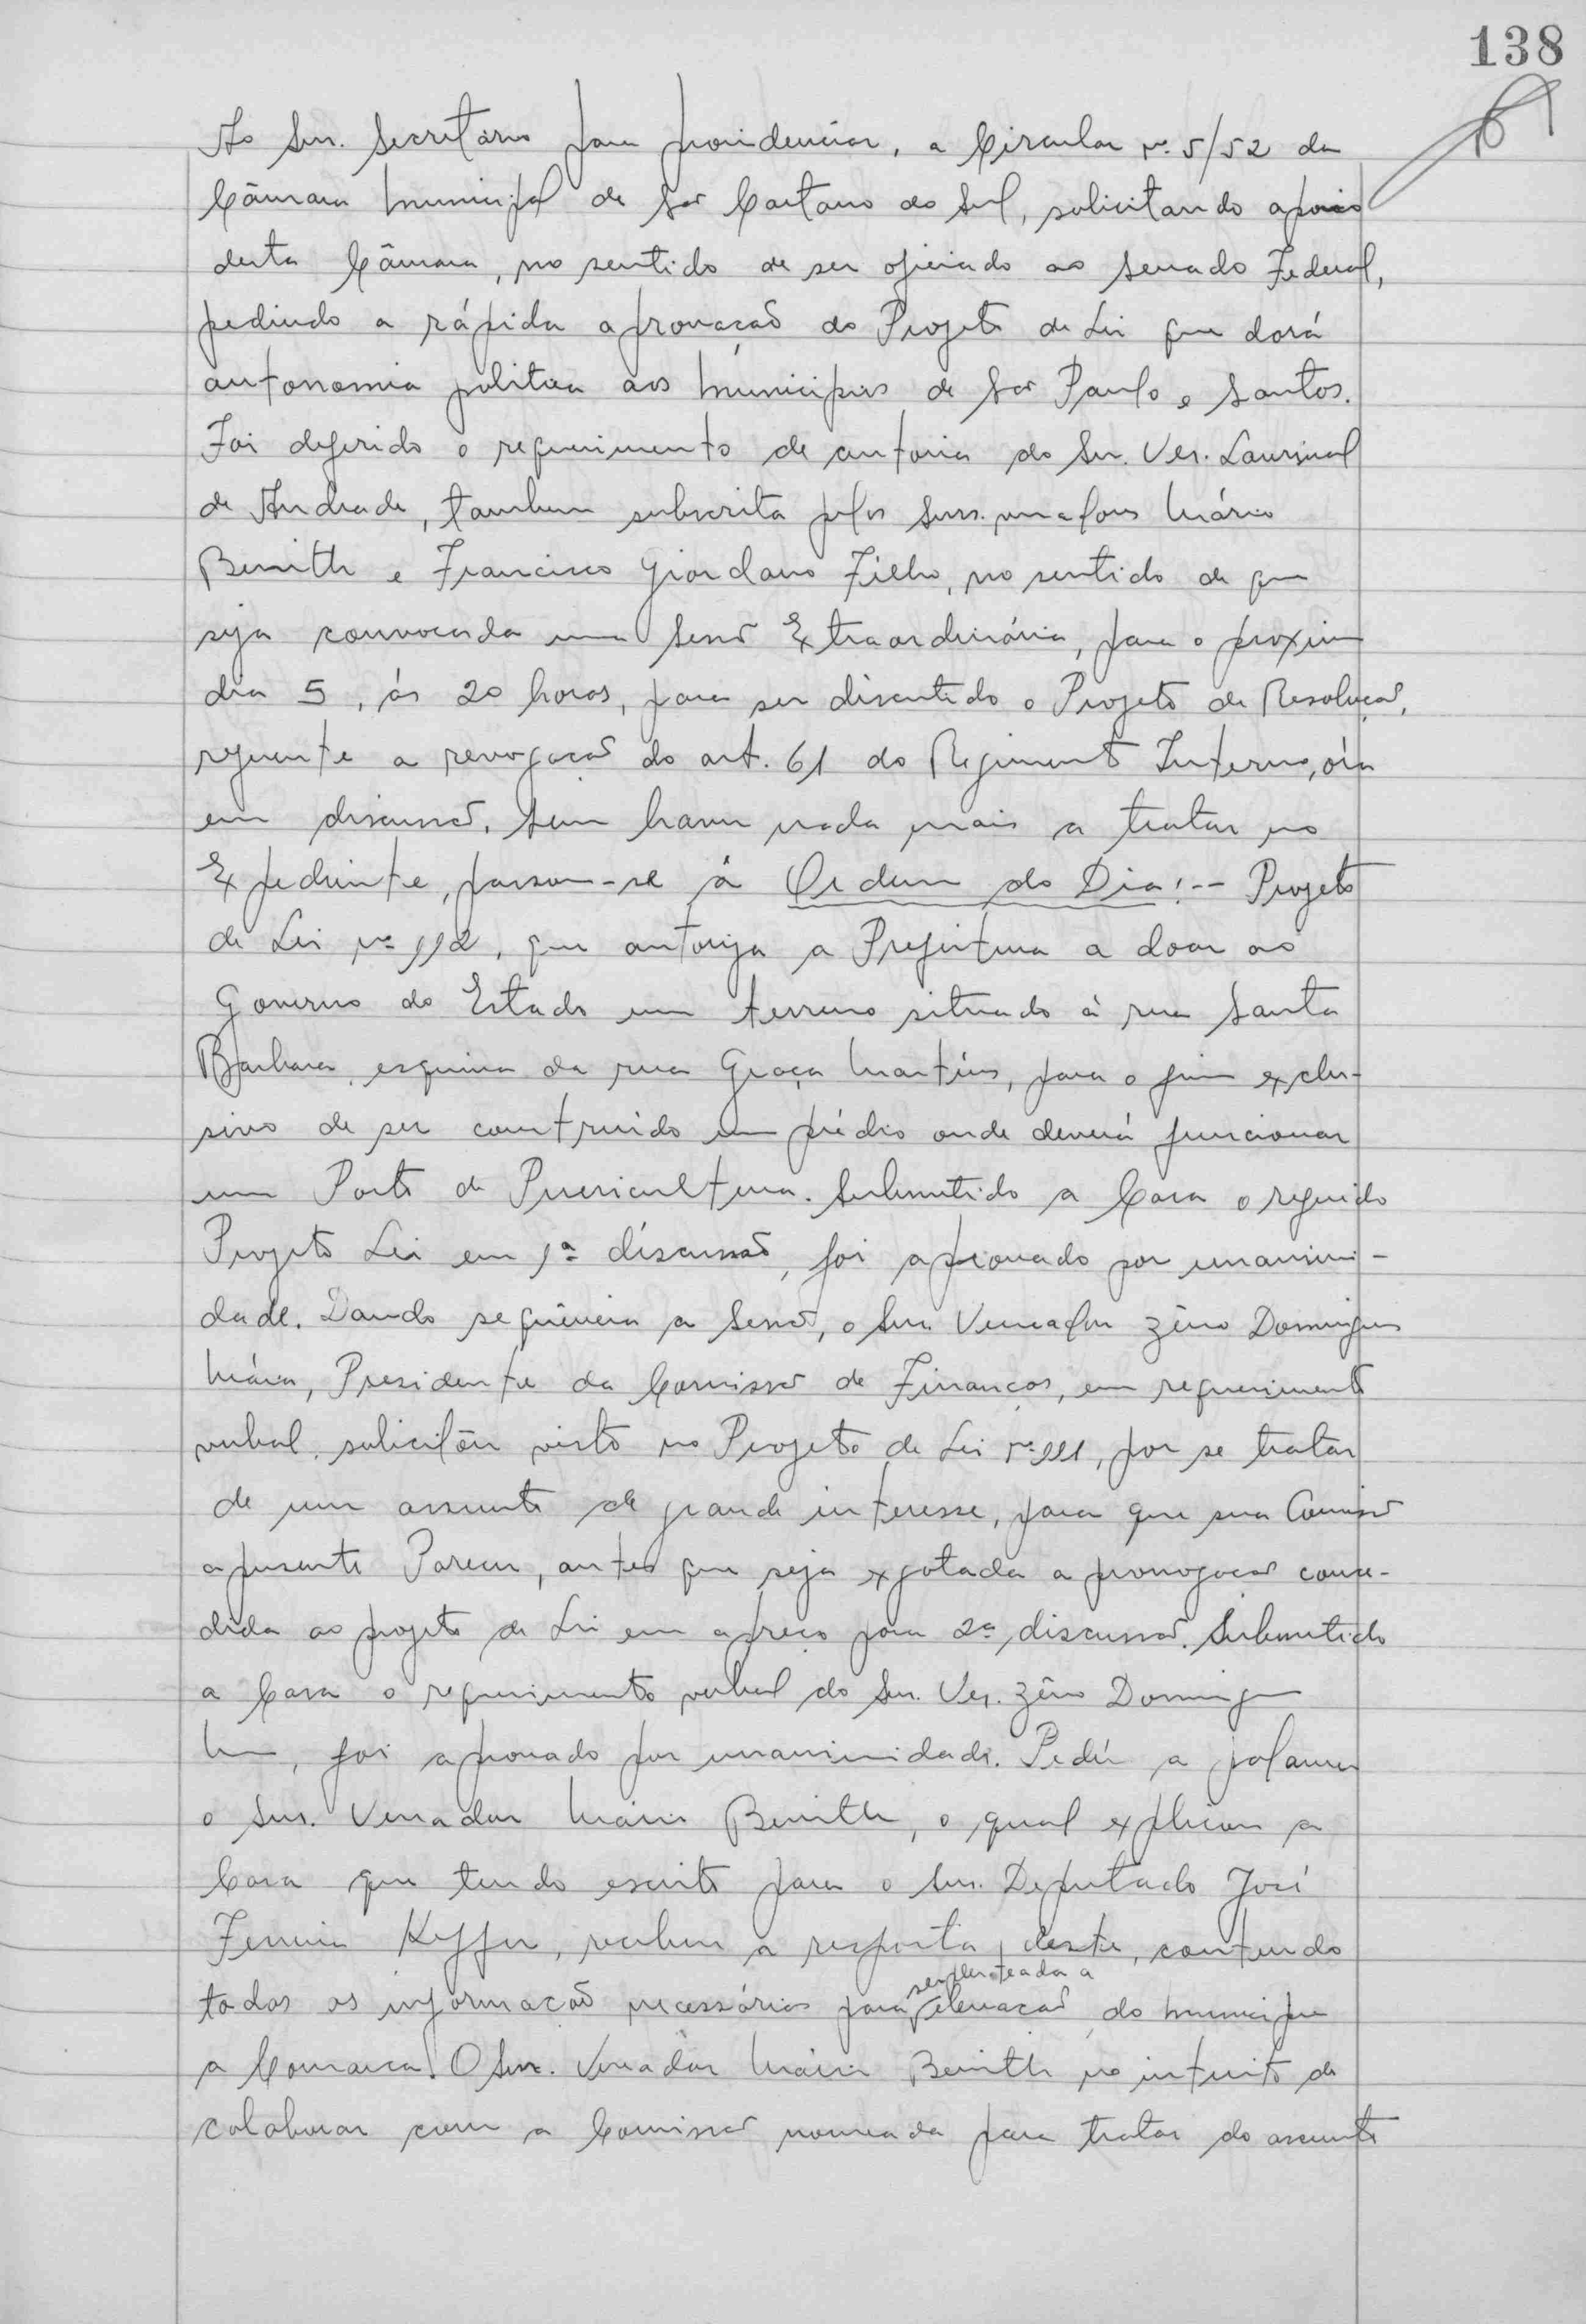 138
Ao Snr. Secretário para providenciar, a Circular nº 5/52 da
Câmara Municipal de São Caetano do Sul, solicitando apoio
desta Câmara, no sentido de ser oficiado ao Senado Federal,
pedindo a rápida aprovação do Projeto de Lei que dará
autonomia politica aos Municipios de São Paulo e Santos.
Foi deferido o requerimento de autoria do Snr. Ver. Lourival
de Andrade, tambem subscrita pelos Snrs. vereadores Mário
Benith e Francisco Giordano Filho, no sentido de que
seja convocada uma Sessão Extraordinária, para o proximo
dia 5, ás 20 horas, para ser discutido o Projeto de Resolução,
referente a revogação do art. 61 do Regimento Interno, óra
em discussão. Sem haver nada mais a tratar no
Expediente, passou-se á Ordem do Dia:-- Projeto
de Lei nº 112, que autoriza a Prefeitura a doar ao
Governo do Estado um terreno situado à rua Santa
Barbara, esquina da rua Graça Martins, para o fim exclu-
sivo de ser construido um prédio onde deverá funcionar
um Posto de Puericultura. Submetido a Casa o referido
Projeto Lei em 1ª discussão, foi aprovado por unanimi-
dade. Dando sequência a Sessão, o Snr. Vereador Zêno Domingues
Mária, Presidente da Comissão de Finanças, em requerimento
verbal, solicitou visto no Projeto de Lei nº 111, por se tratar
de um assunto de grande interesse, para que sua Comissão
apresente Parecer, antes que seja exgotada a prorrogação conce-
dida ao projeto de Lei em apreço para 2ª discussão. Submetido
a Casa o requerimento verbal do Snr. Ver. Zêno Domingues
, foi aprovado por unanimidade. Pediu a palavra
o Snr. Vereador Mário Benith, o qual explicou a
Casa que tendo escrito para o Snr. Deputado José
Ferreira Keffer, recebeu a resposta deste, contendo
todas as informação necessárias para ser pleiteada a elevação do municipio
a Comarca. O Snr. Vereador Mário Benith no intuito de
colaborar com a Comissão nomeada para tratar do assunto